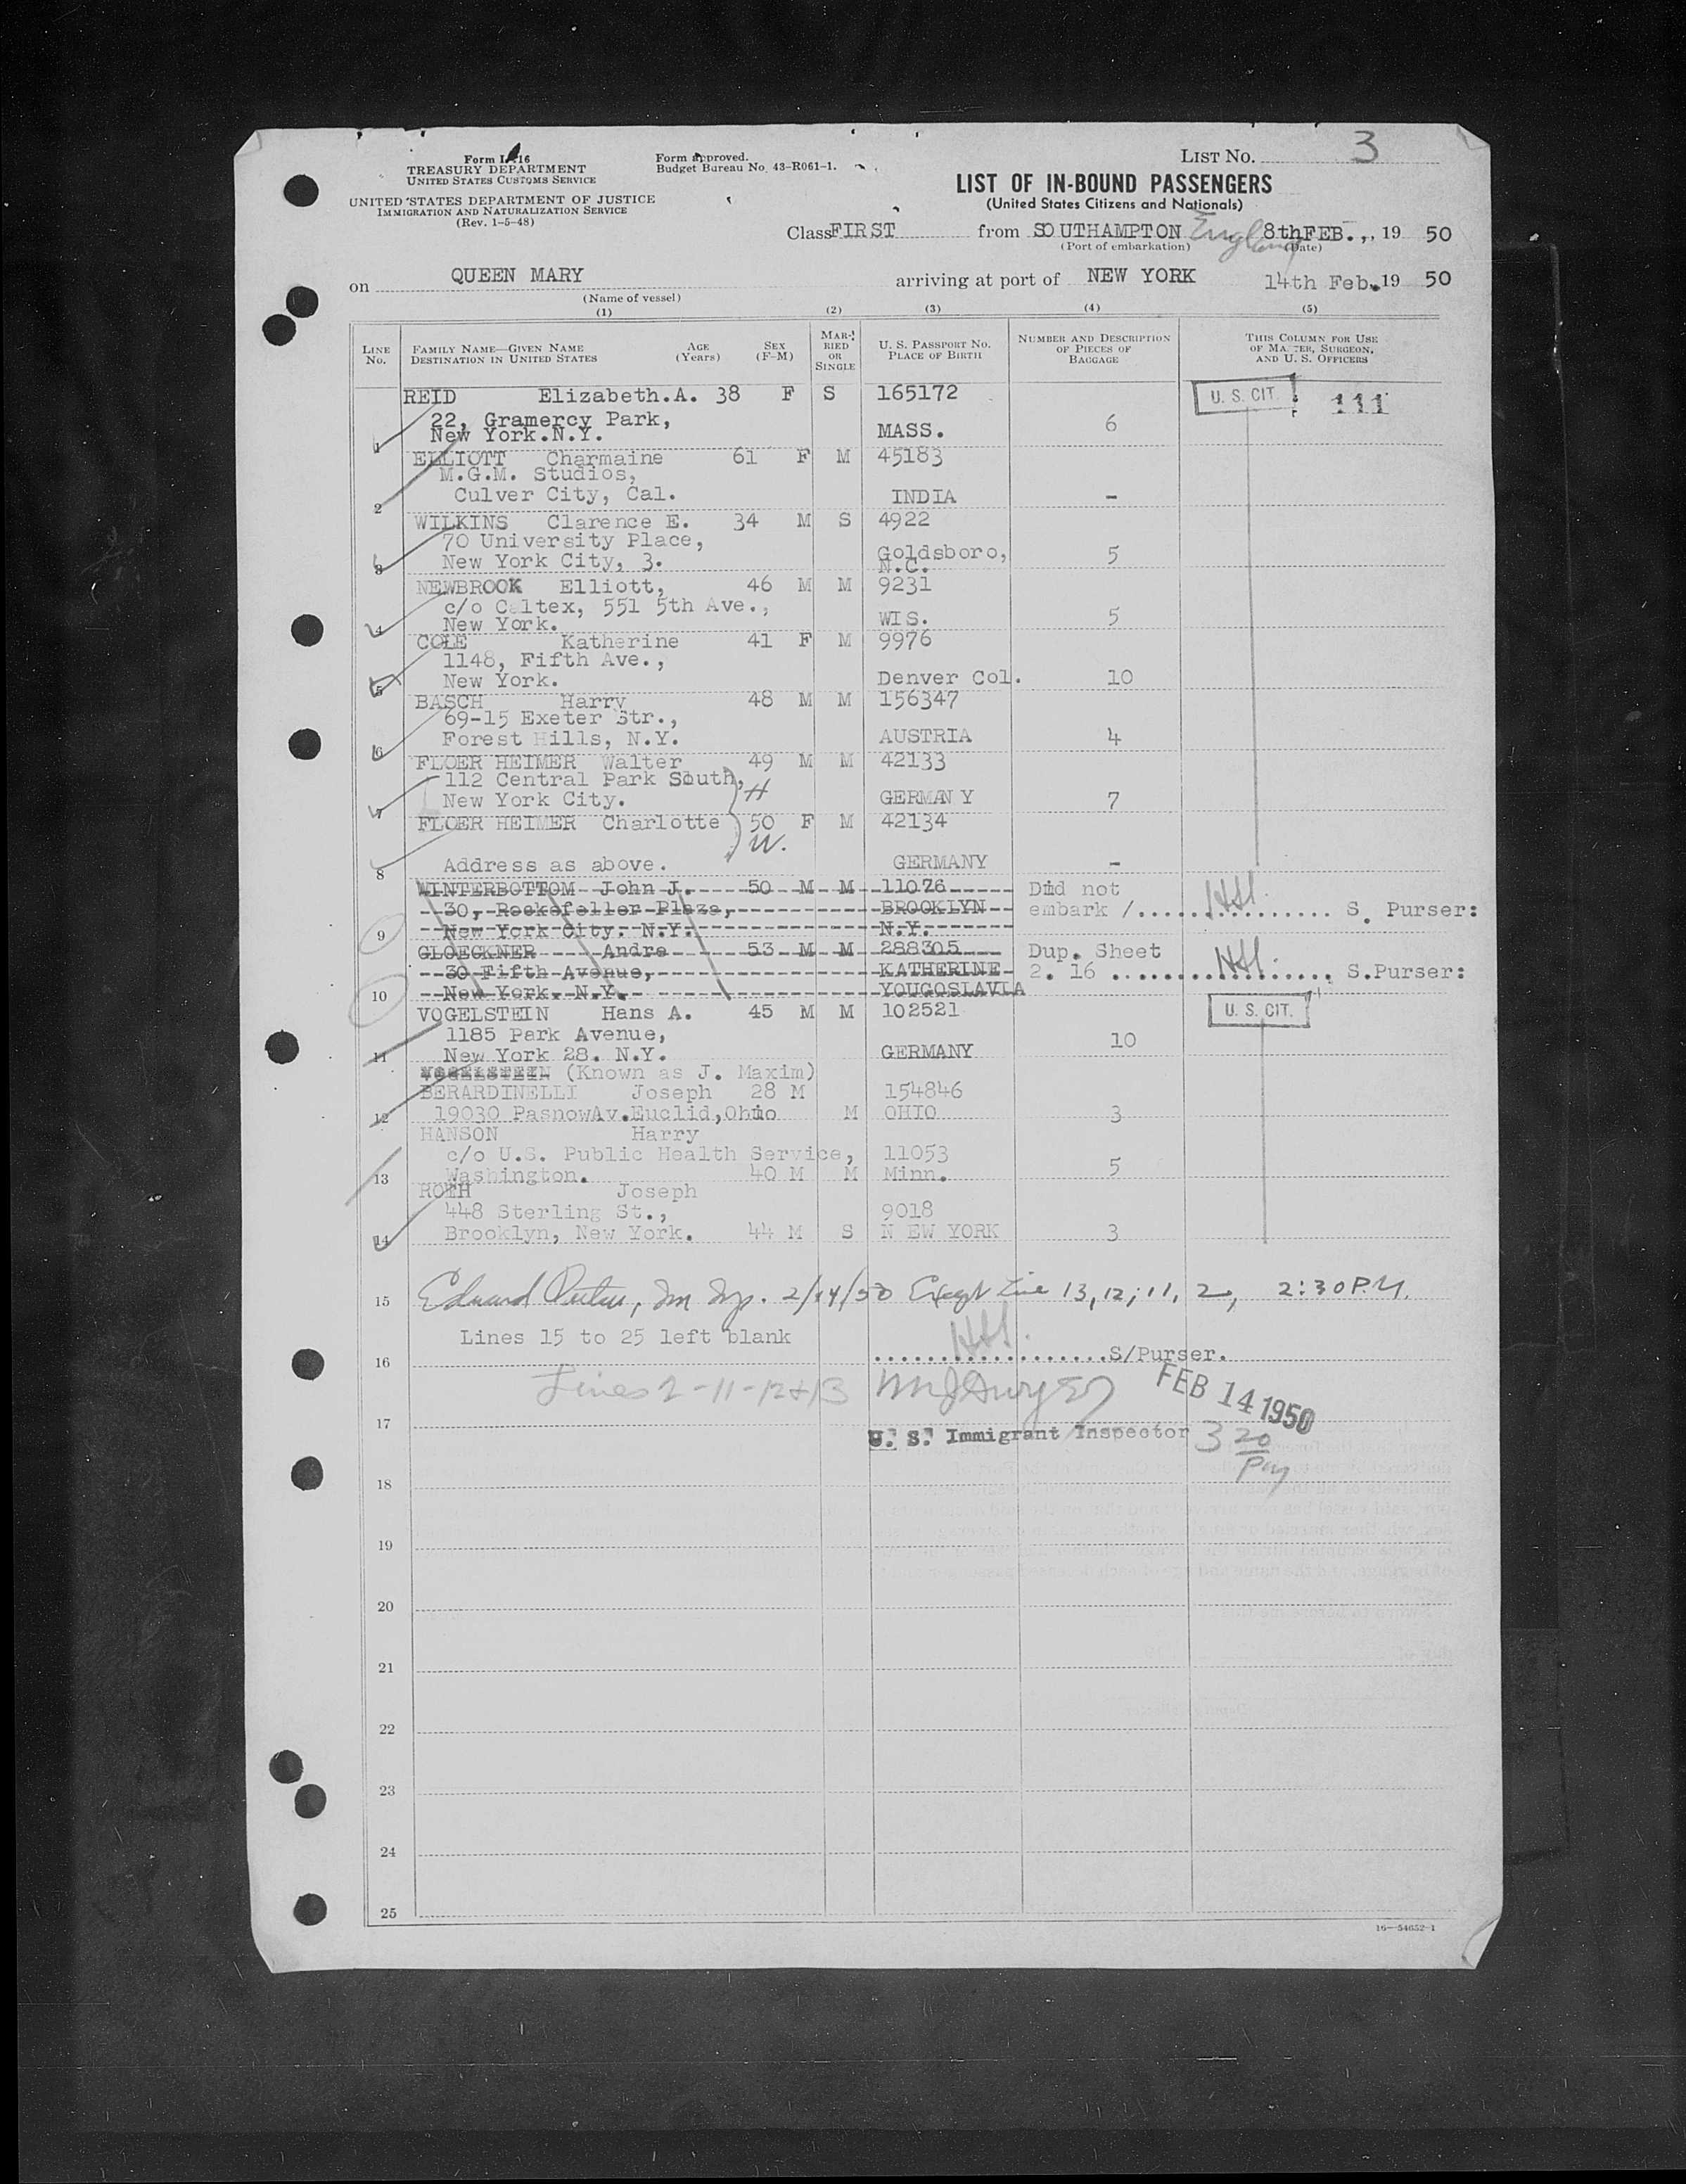 LIST No. 3
Form I-416
TREASURY DEPARTMENT
UNITED STATES CUSTOMS SERVICE
UNITED STATES DEPARTMENT OF JUSTICE
IMMIGRATION AND NATURALIZATION SERVICE
(Rev. 1-5-48)
Form approved.
Budget Bureau No. 43-R061-1.
LIST OF IN-BOUND PASSENGERS
(United States Citizens and Nationals)
Class FIRST from SOUTHAMPTON England 8th FEB., 19 50
(Port of embarkation) (Date)
on QUEEN MARY arriving at port of NEW YORK 14th Feb. 19 50
(Name of vessel)
(1) (2) (3) (4) (5)
LINE No.
FAMILY NAME—GIVEN NAME
DESTINATION IN UNITED STATES
AGE (Years)
SEX (F-M)
MARRIED OR SINGLE
U. S. PASSPORT NO.
PLACE OF BIRTH
NUMBER AND DESCRIPTION OF PIECES OF BAGGAGE
THIS COLUMN FOR USE OF MASTER, SURGEON, AND U. S. OFFICERS
REID Elizabeth.A. 38 F S 165172 U. S. CIT. 111
22, Gramercy Park,
1 New York.N.Y. MASS. 6
ELLIOTT Charmaine 61 F M 45183
M.G.M. Studios,
2 Culver City, Cal. INDIA -
WILKINS Clarence E. 34 M S 4922
70 University Place,
3 New York City, 3. Goldsboro, N.C. 5
NEWBROOK Elliott, 46 M M 9231
c/o Caltex, 551 5th Ave.,
4 New York. WIS. 5
COLE Katherine 41 F M 9976
1148, Fifth Ave.,
5 New York. Denver Col. 10
BASCH Harry 48 M M 156347
69-15 Exeter Str.,
6 Forest Hills, N.Y. AUSTRIA 4
FLOER HEIMER Walter 49 M M 42133
112 Central Park South, H
7 New York City. GERMAN Y 7
FLOER HEIMER Charlotte 50 F M 42134
W.
8 Address as above. GERMANY -
WINTERBOTTOM John J. 50 M M 11076 Did not
30, Rockefeller Plaza, BROOKLYN embark /................ S. Purser:
9 New York City. N.Y. N.Y.
GLOECKNER Andre 53 M M 288305 Dup. Sheet
30 Fifth Avenue, KATHERINE 2. 16 .................. S.Purser:
10 New York. N.Y. YOUGOSLAVIA
VOGELSTEIN Hans A. 45 M M 102521 U. S. CIT.
1185 Park Avenue,
11 New York 28. N.Y. GERMANY 10
VOGELSTEIN (Known as J. Maxim)
BERARDINELLI Joseph 28 M 154846
12 19030 PasnowAv.Euclid,Ohio M OHIO 3
HANSON Harry
c/o U.S. Public Health Service, 11053
13 Washington. 40 M M Minn. 5
ROTH Joseph
448 Sterling St., 9018
14 Brooklyn, New York. 44 M S N EW YORK 3
15 Edward Im Insp. 2/14/50 Except Line 13, 12, 11, 2, 2:30 P.M.
Lines 15 to 25 left blank
16 ..................S/Purser.
Lines 2-11-12+13 FEB 14 1950
17
U. S. Immigrant Inspector 3 20 PM
18
19
20
21
22
23
24
25
16—54652-1